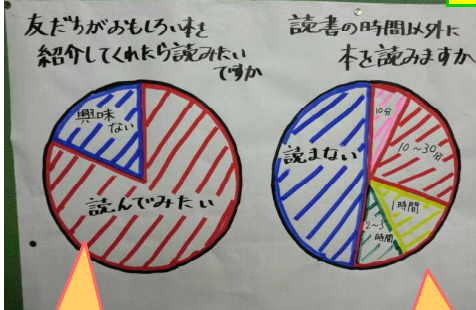 友だちがおもしろい本を
紹介してくれたら読みたい
ですか
興味
ない
読んでみたい
読書の時間以外に
本を読みますか
10分
10〜30分
1時間
2〜3
時間
読まない